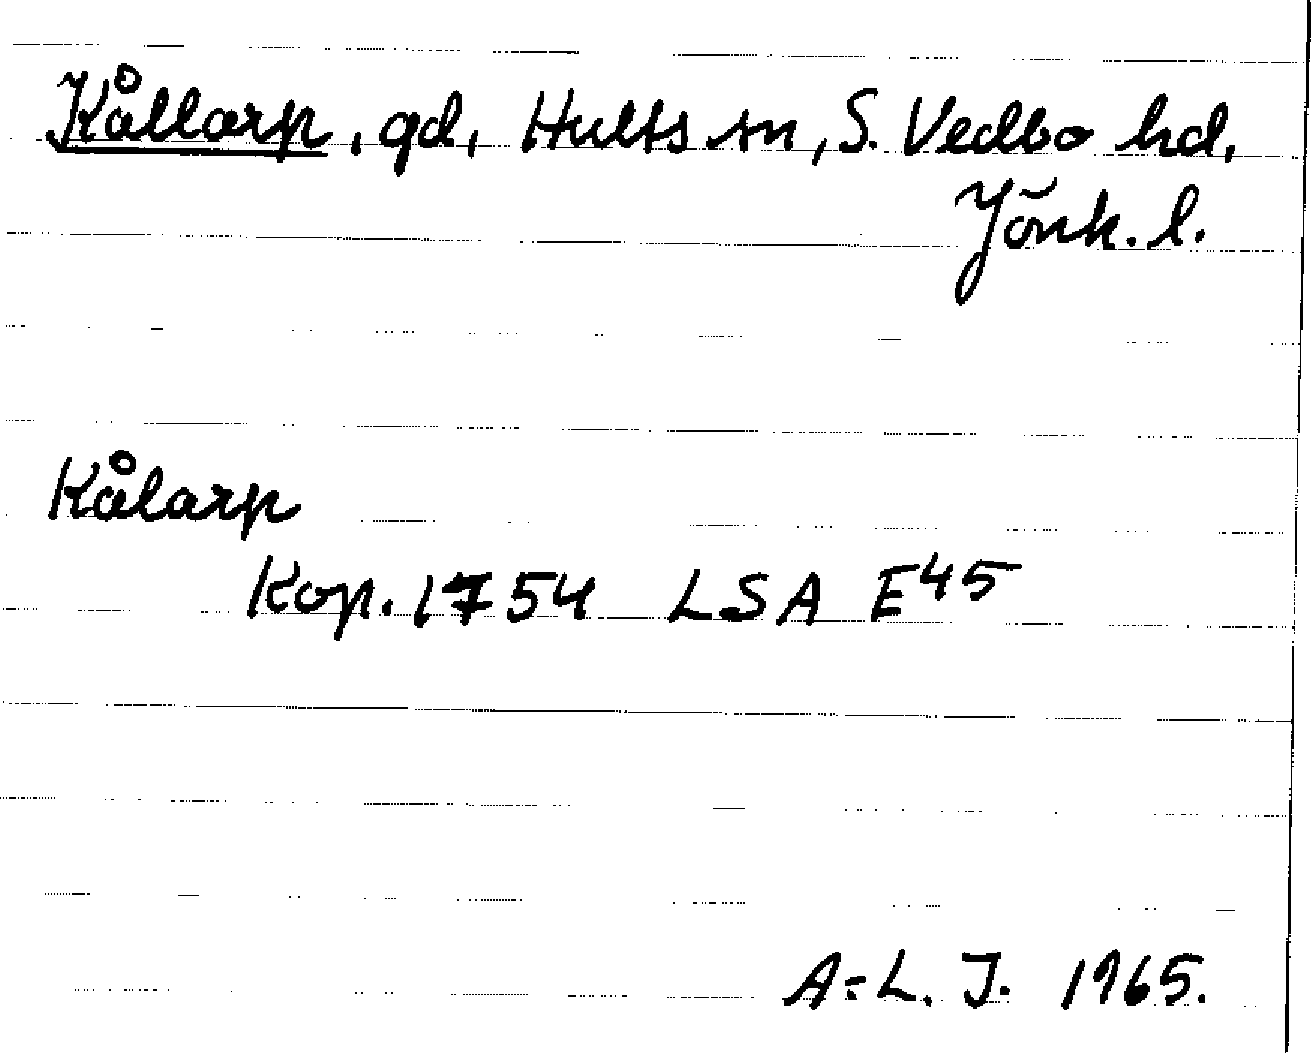 Kållarp, gd, Hults sn, S. Vedbo hd,
Jönk. l.
Kålarp
Kop. 1754 LSA E45
A-L. J. 1965.